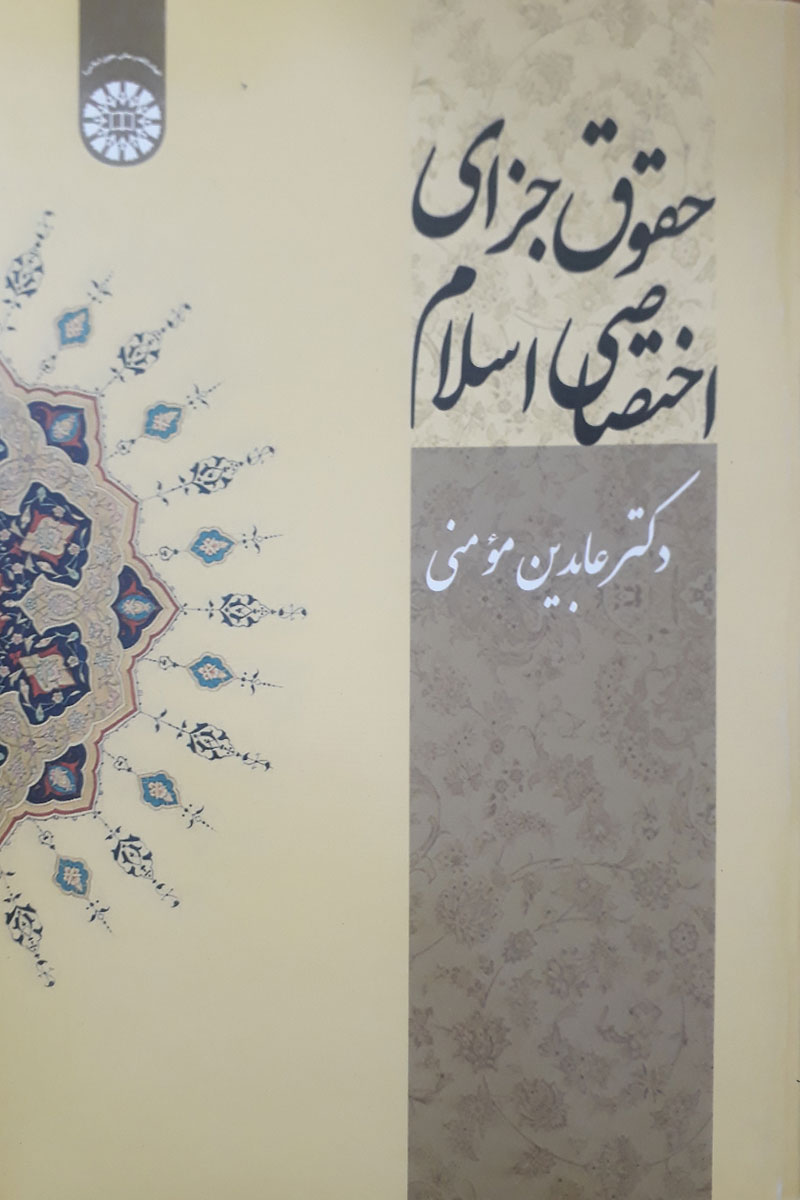 حقوق جزای
اختصاصی اسلام
دکتر عابدین مؤمنی